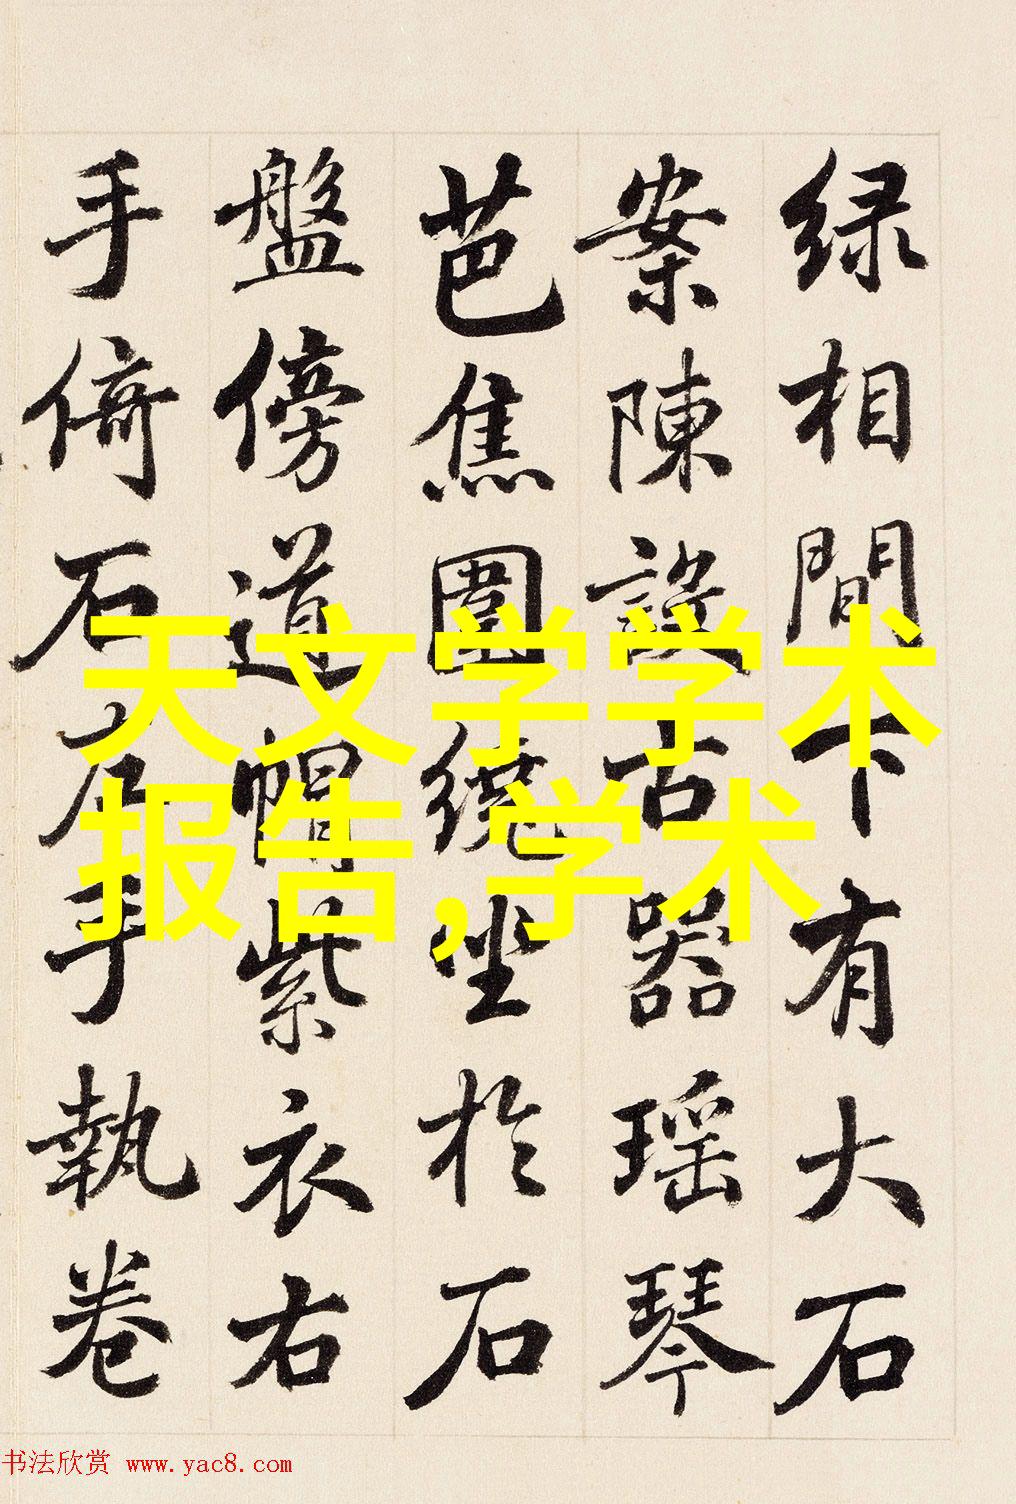 绿相間下有大石
案陳設古器瑶琴
芭焦圍繞坐於石
盤傍道帽紫衣右
手倚石左手執卷
天文学学术
报告,学术
书法欣赏 www.yac8.com